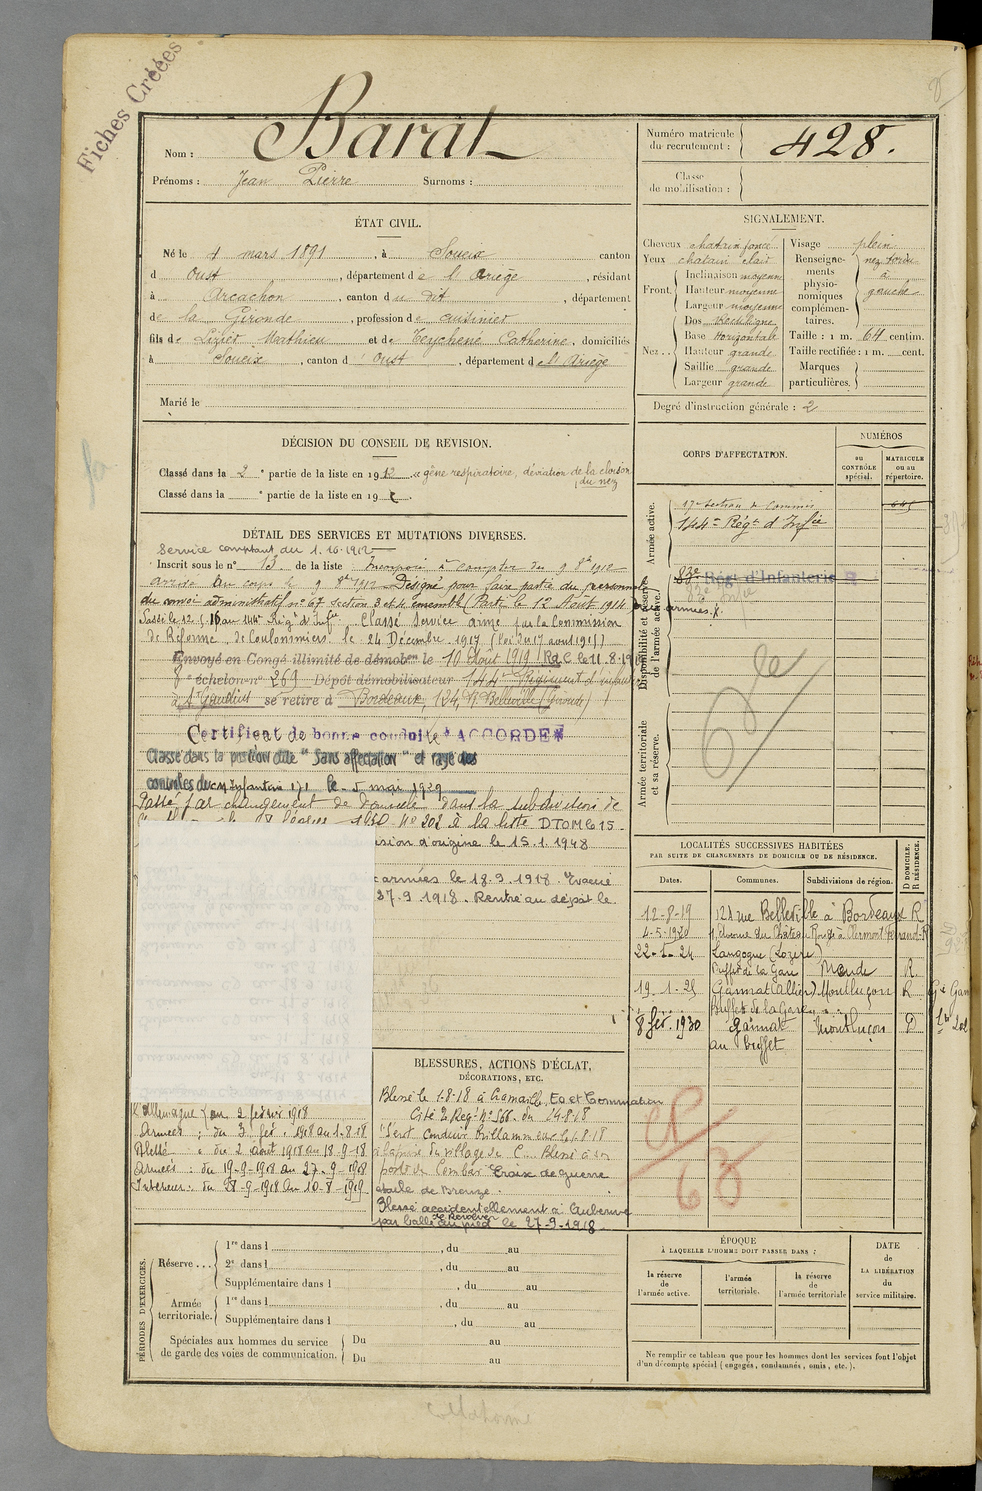 Fiches Créées
8
Nom : Barat
Prénoms : Jean Pierre Surnoms :
Numéro matricule du recrutement : 428.
Classe de mobilisation :
ÉTAT CIVIL.
Né le 4 mars 1891, à Soueix canton
d Oust, département de l'Ariège, résidant
à Arcachon, canton du dit, département
de la Gironde, profession de cuisinier
fils de Lizier Mathieu et de Teychené Catherine, domiciliés
à Soueix, canton d'Oust, département de l'Ariège
Marié le
SIGNALEMENT.
Cheveux chatain foncé
Yeux chatain clair
Front. Inclinaison moyenne
Hauteur moyenne
Largeur moyenne
Nez.. Dos Rectiligne
Base Horizontale
Hauteur grande
Saillie grande
Largeur grande
Visage plein
Renseignements physionomiques complémentaires. nez tordu à gauche
Taille : 1 m. 64 centim.
Taille rectifiée : 1 m. cent.
Marques particulières.
Degré d'instruction générale : 2
DÉCISION DU CONSEIL DE REVISION.
Classé dans la 2e partie de la liste en 1912 « gêne respiratoire, déviation de la cloison du nez
Classé dans la e partie de la liste en 19
DÉTAIL DES SERVICES ET MUTATIONS DIVERSES.
Service comptant du 1.10.1912
Inscrit sous le no 13. de la liste Incorporé à compter du 9 8bre 1912
arrivé au corps le 9 8bre 1912 Désigné pour faire partie du personnel
du convoi administratif no 67 section 3 et 4 ensemble (Parti le 12 Août 1914 aux armées).
Passé le 12.5.16 au 144e Régt d'Infie. Classé Service armé par la Commission
de Réforme de Coulommiers le 24 Décembre 1917 (loi du 17 aout 1915)
Envoyé en Congé illimité de démobon le 10 Août 1919 (RdC le 11.8.19
8e échelon no 269 Dépôt démobilisateur 144e Régiment d'infanterie
à St Gaudens se retire à Bordeaux, 124, r. Belleville (Gironde)
Certificat de bonne conduite "ACCORDÉ"
Classé dans la position dite "Sans affectation" et rayé des
contrôles du CM Infanterie 171 le -5 mai 1929
Passé par changement de domicile dans la subdivision de
1930 No 202 à la liste DTOM 615.
sion d'origine le 15.1.1948
armées le 18.9.1918. Evacué
27.9.1918. Rentré au dépôt le
CORPS D'AFFECTATION.
NUMÉROS
au CONTRÔLE spécial.
MATRICULE ou au répertoire.
Armée active.
17e section de Commis 645
144e Régt d'Infie
Disponibilité et réserve de l'armée active.
83e Régt d'Infanterie
Armée territoriale et sa réserve.
LOCALITÉS SUCCESSIVES HABITÉES
PAR SUITE DE CHANGEMENTS DE DOMICILE OU DE RÉSIDENCE.
Dates. Communes. Subdivisions de région. D DOMICILE. R RÉSIDENCE.
12-8-19 124 rue Belleville à Bordeaux R
4-5-1920 1, Avenue du Château Rouge à Clermont Ferrand R
22-1-24 Langogne (Lozère) Buffet de la Gare Mende R.
19.1.25 Gannat (Allier) Buffet de la Gare Montluçon R
8 fév. 1930 Gannat au Buffet Montluçon D
BLESSURES, ACTIONS D'ÉCLAT,
DÉCORATIONS, ETC.
Blessé le 1-8-18 à Gramaille, Eq et Commotion
Cité O. Régt No 566 du 24-8-18
"S'est conduit brillamment le 1-8-18
à la prise du village de C... Blessé à son
poste de combat. Croix de guerre
étoile de Bronze.
Blessé accidentellement à Auberive
par balle de Revolver au pied le 27-9-1918.
C. Allemagne au 2 février 1918
Armées : du 3 fév. 1918 au 1-8-18
Blessé : du 2 août 1918 au 18-9-18
Armées : du 19-9-1918 au 27-9-1918
Intérieur : du 28-9-1918 au 10-8-1919
PÉRIODES D'EXERCICES.
Réserve... 1re dans l , du au
2e dans l , du au
Supplémentaire dans l , du au
Armée territoriale. 1re dans l , du au
Supplémentaire dans l , du au
Spéciales aux hommes du service de garde des voies de communication. Du au
Du au
ÉPOQUE
À LAQUELLE L'HOMME DOIT PASSER DANS :
la réserve de l'armée active.
l'armée territoriale.
la réserve de l'armée territoriale
DATE de LA LIBÉRATION du service militaire.
Ne remplir ce tableau que pour les hommes dont les services font l'objet
d'un décompte spécial (engagés, condamnés, omis, etc.).